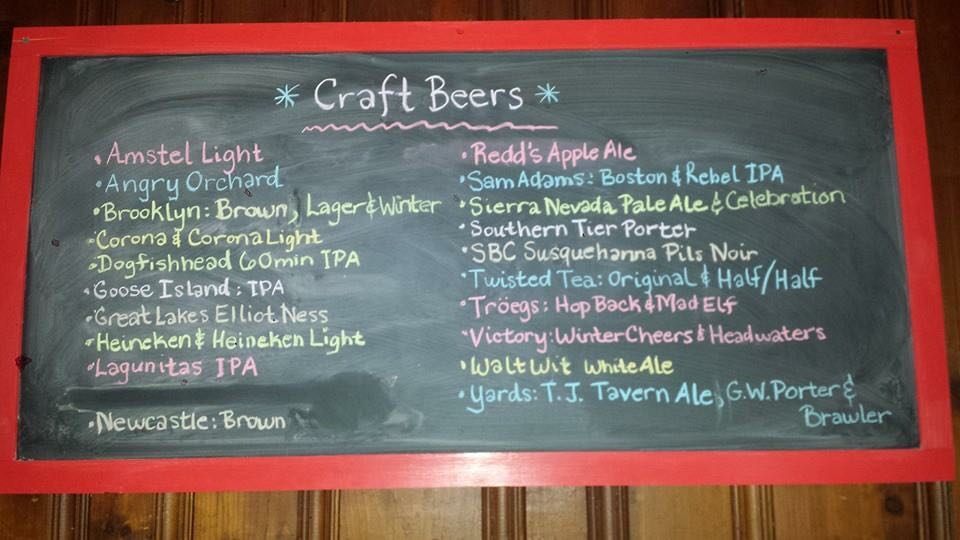 * Craft Beers *
• Amstel Light
• Angry Orchard
• Brooklyn: Brown, Lager & Winter
• Corona & Corona Light
• Dogfishhead 60min IPA
• Goose Island: IPA
• Great Lakes Elliot Ness
• Heineken & Heineken Light
• Lagunitas IPA
• Newcastle: Brown
• Redd's Apple Ale
• Sam Adams: Boston & Rebel IPA
• Sierra Nevada Pale Ale & Celebration
• Southern Tier Porter
• SBC Susquehanna Pils Noir
• Twisted Tea: Original & Half/Half
• Tröegs: Hop Back & Mad Elf
• Victory: Winter Cheers & Headwaters
• Walt Wit White Ale
• Yards: T.J. Tavern Ale, G.W. Porter &
Brawler